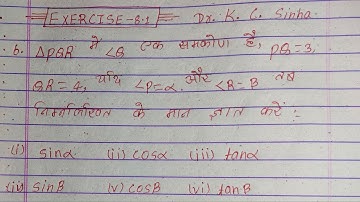 EXERCISE-8.1 Dr. K. C. Sinha
6. ΔPQR में ∠Q एक समकोण है, PQ=3,
QR=4, यदि ∠P=α और ∠R=B तब
निम्नलिखित के मान ज्ञात करें:
(i) sinα (ii) cosα (iii) tanα
(iv) sinB (v) cosB (vi) tanB